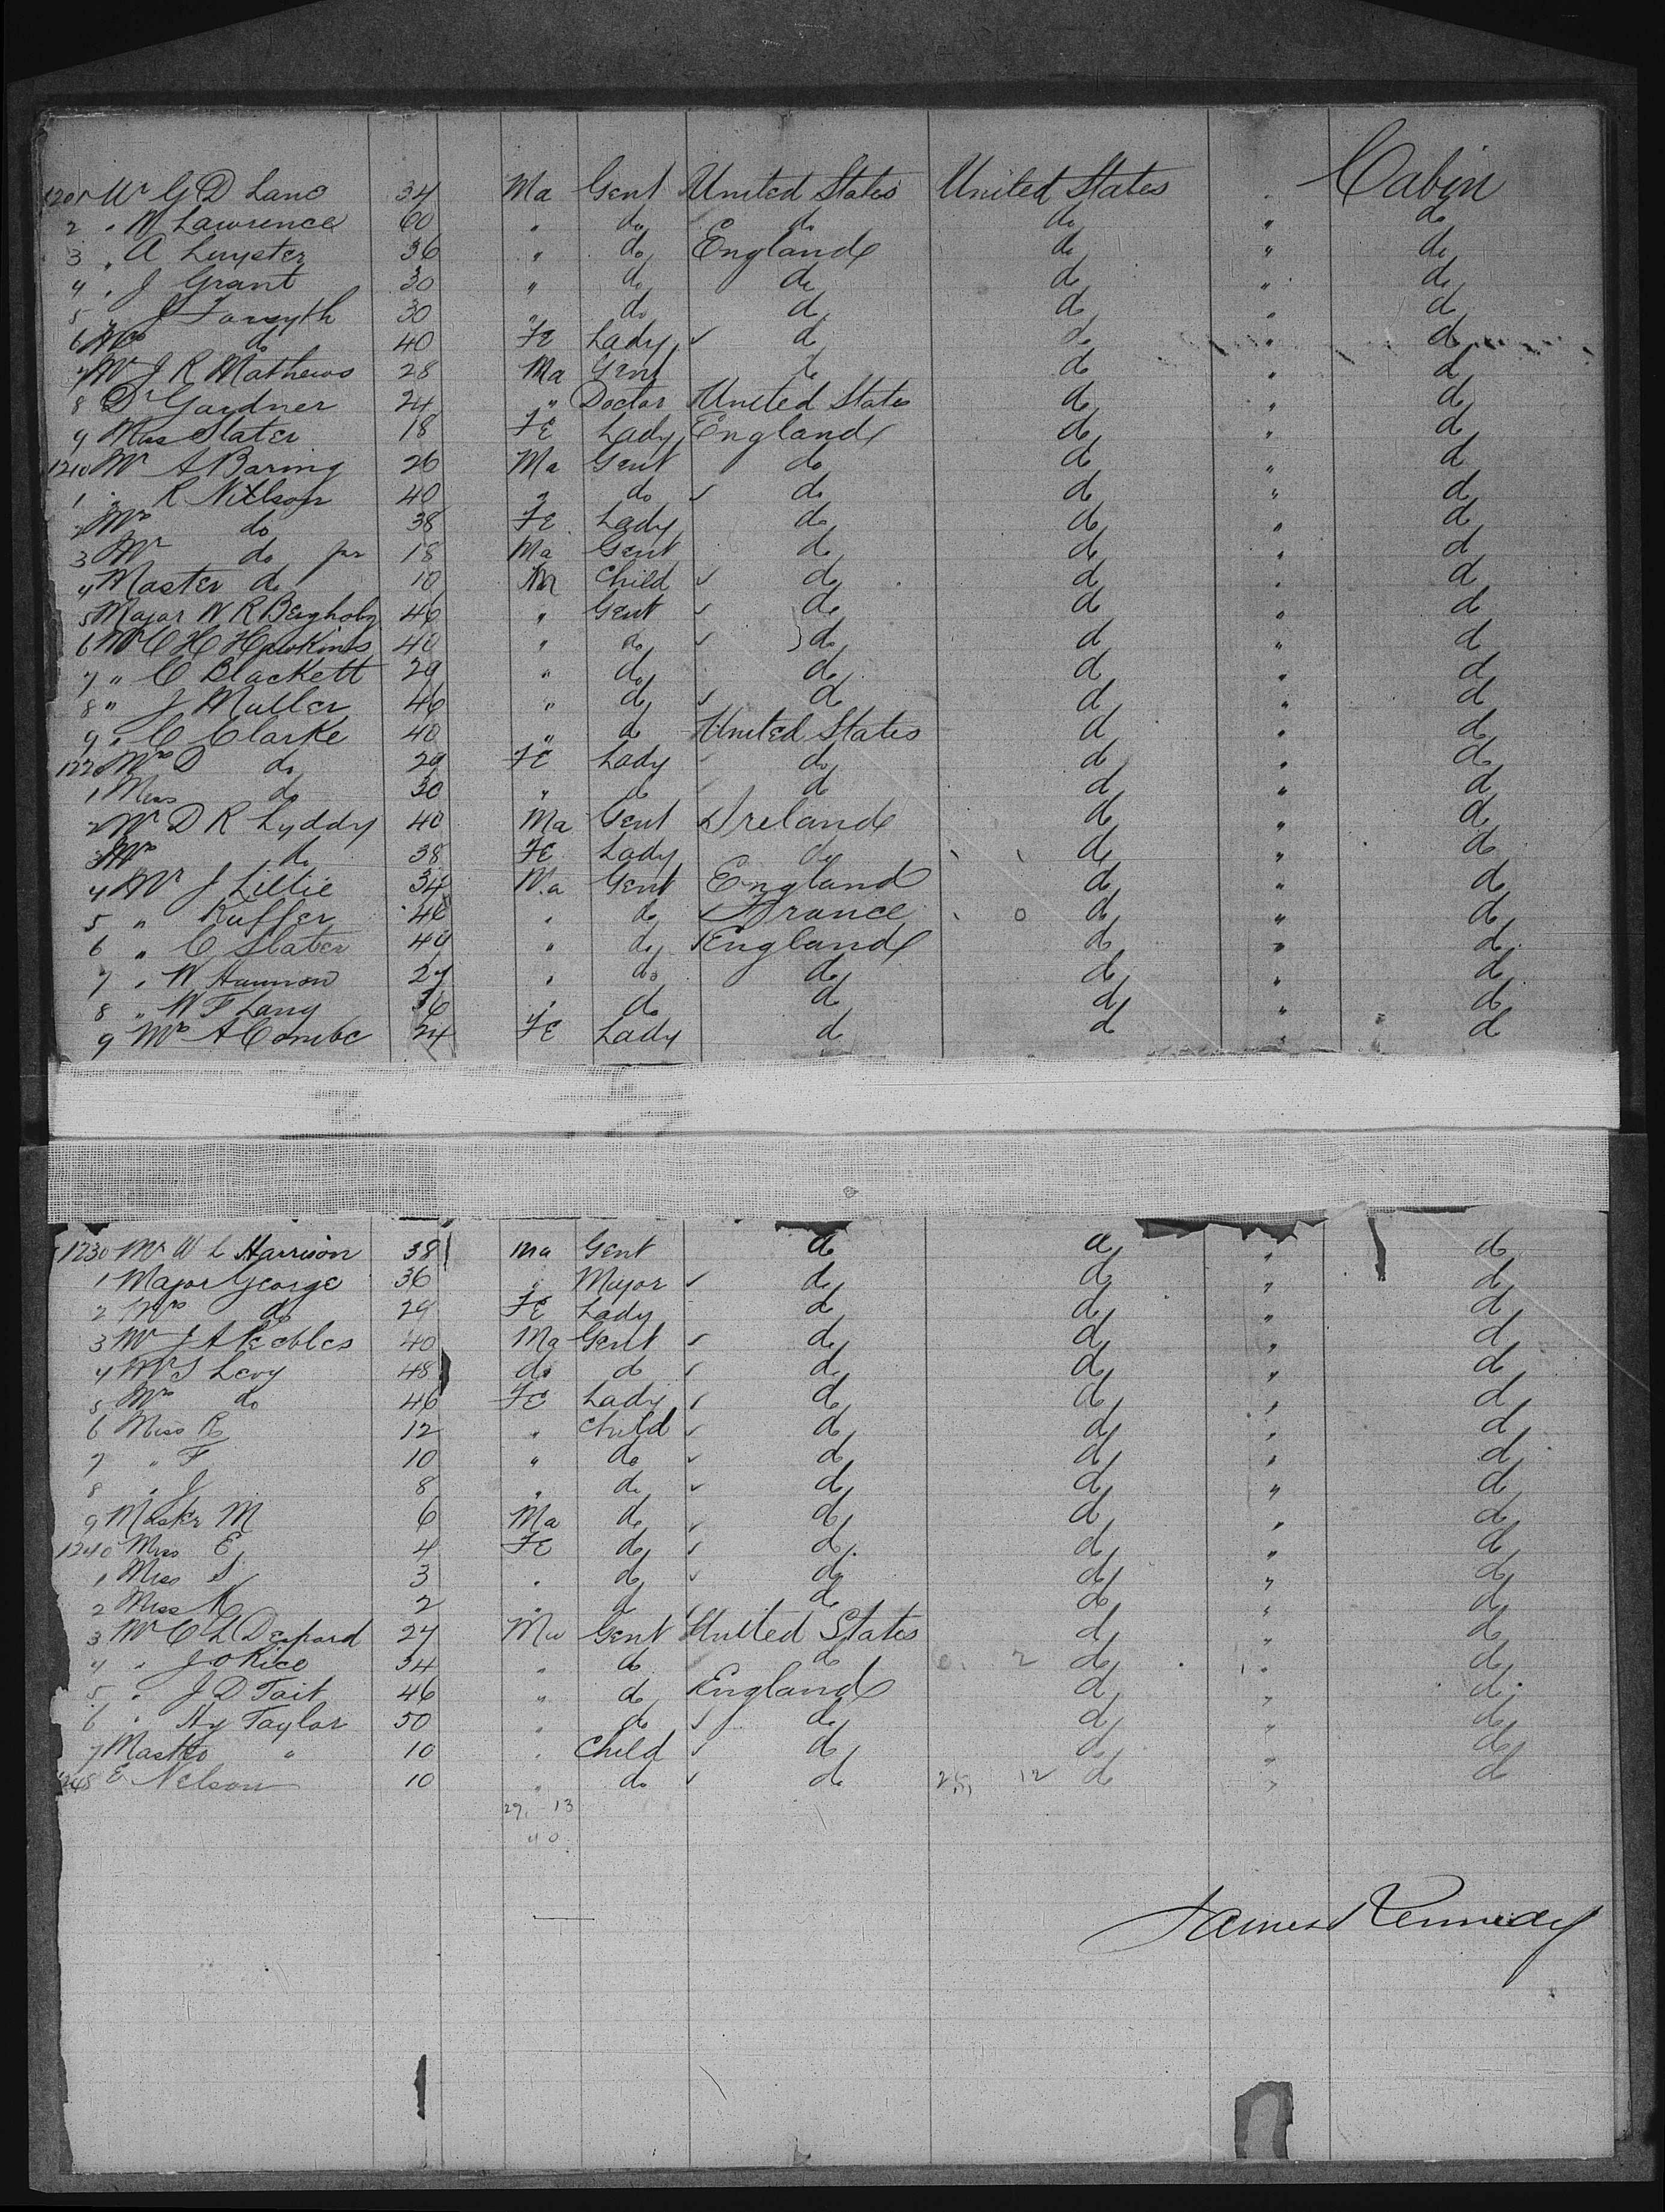 Cabin
1201 Mr G D Lane 34 Ma Gent United States United States
2 " W Lawrence 60 " do do do " do
3 " A Luyster 36 " do England do " do
4 " J Grant 30 " do do do " do
5 " J Forsyth 30 " do do do " do
6 Mrs do 40 Fe Lady ✓ do do " do
7 Mr J R Mathews 28 Ma Gent do do " do
8 Dr Gardner 24 " Doctor United States do " do
9 Miss Slater 18 Fe Lady England do " do
1210 Mr A Baring 26 Ma Gent do do " do
1 " R Nillson 40 " do ✓ do do " do
2 Mrs do 38 Fe Lady do do " do
3 Mr do jnr 18 Ma Gent do do " do
4 Master do 10 M Child ✓ do do " do
5 Major W R 46 " Gent ✓ do do " do
6 Mr C H Hawkins 40 " do ✓ do do " do
7 " C Blackett 29 " do do do " do
8 " J Muller 46 " do ✓ do do " do
9 " C Clarke 40 " do United States do " do
1220 Mrs D do 29 Fe Lady do do " do
1 Miss do 30 " do do do " do
2 Mr D R Lyddy 40 Ma Gent Ireland do " do
3 Mrs do 38 Fe Lady do do " do
4 Mr J Lillie 34 Ma Gent England do " do
5 " Ruffer 46 " do France do " do
6 " C Slater 40 " do England do " do
7 " W Hannon 27 " do do do " do
8 " W F Lang 36 " do do do " do
9 Mrs A Combe 24 Fe Lady do do " do
1230 Mr W L Harrison 38 Ma Gent do do " do
1 Major George 36 " Major ✓ do do " do
2 Mrs do 29 Fe Lady do do " do
3 Mr J A Peebles 40 Ma Gent ✓ do do " do
4 Mr S Levy 48 do do ✓ do do " do
5 Mrs do 46 Fe Lady ✓ do do " do
6 Miss R 12 " Child ✓ do do " do
7 " F 10 " do ✓ do do " do
8 " J 8 " do ✓ do do " do
9 Master M 6 Ma do ✓ do do " do
1240 Miss E 4 Fe do ✓ do do " do
1 Miss S 3 " do ✓ do do " do
2 Miss K 2 " do do do " do
3 Mr C L Despard 27 Ma Gent United States do " do
4 " J O Rice 34 " do do 2 do " do
5 " J D Tait 46 " do England do " do
6 " Hy Taylor 50 " do ✓ do do " do
7 Master " 10 " Child ✓ do do " do
1248 E Nelson 10 " do ✓ do 12 do " do
29 - 13
James Kennedy